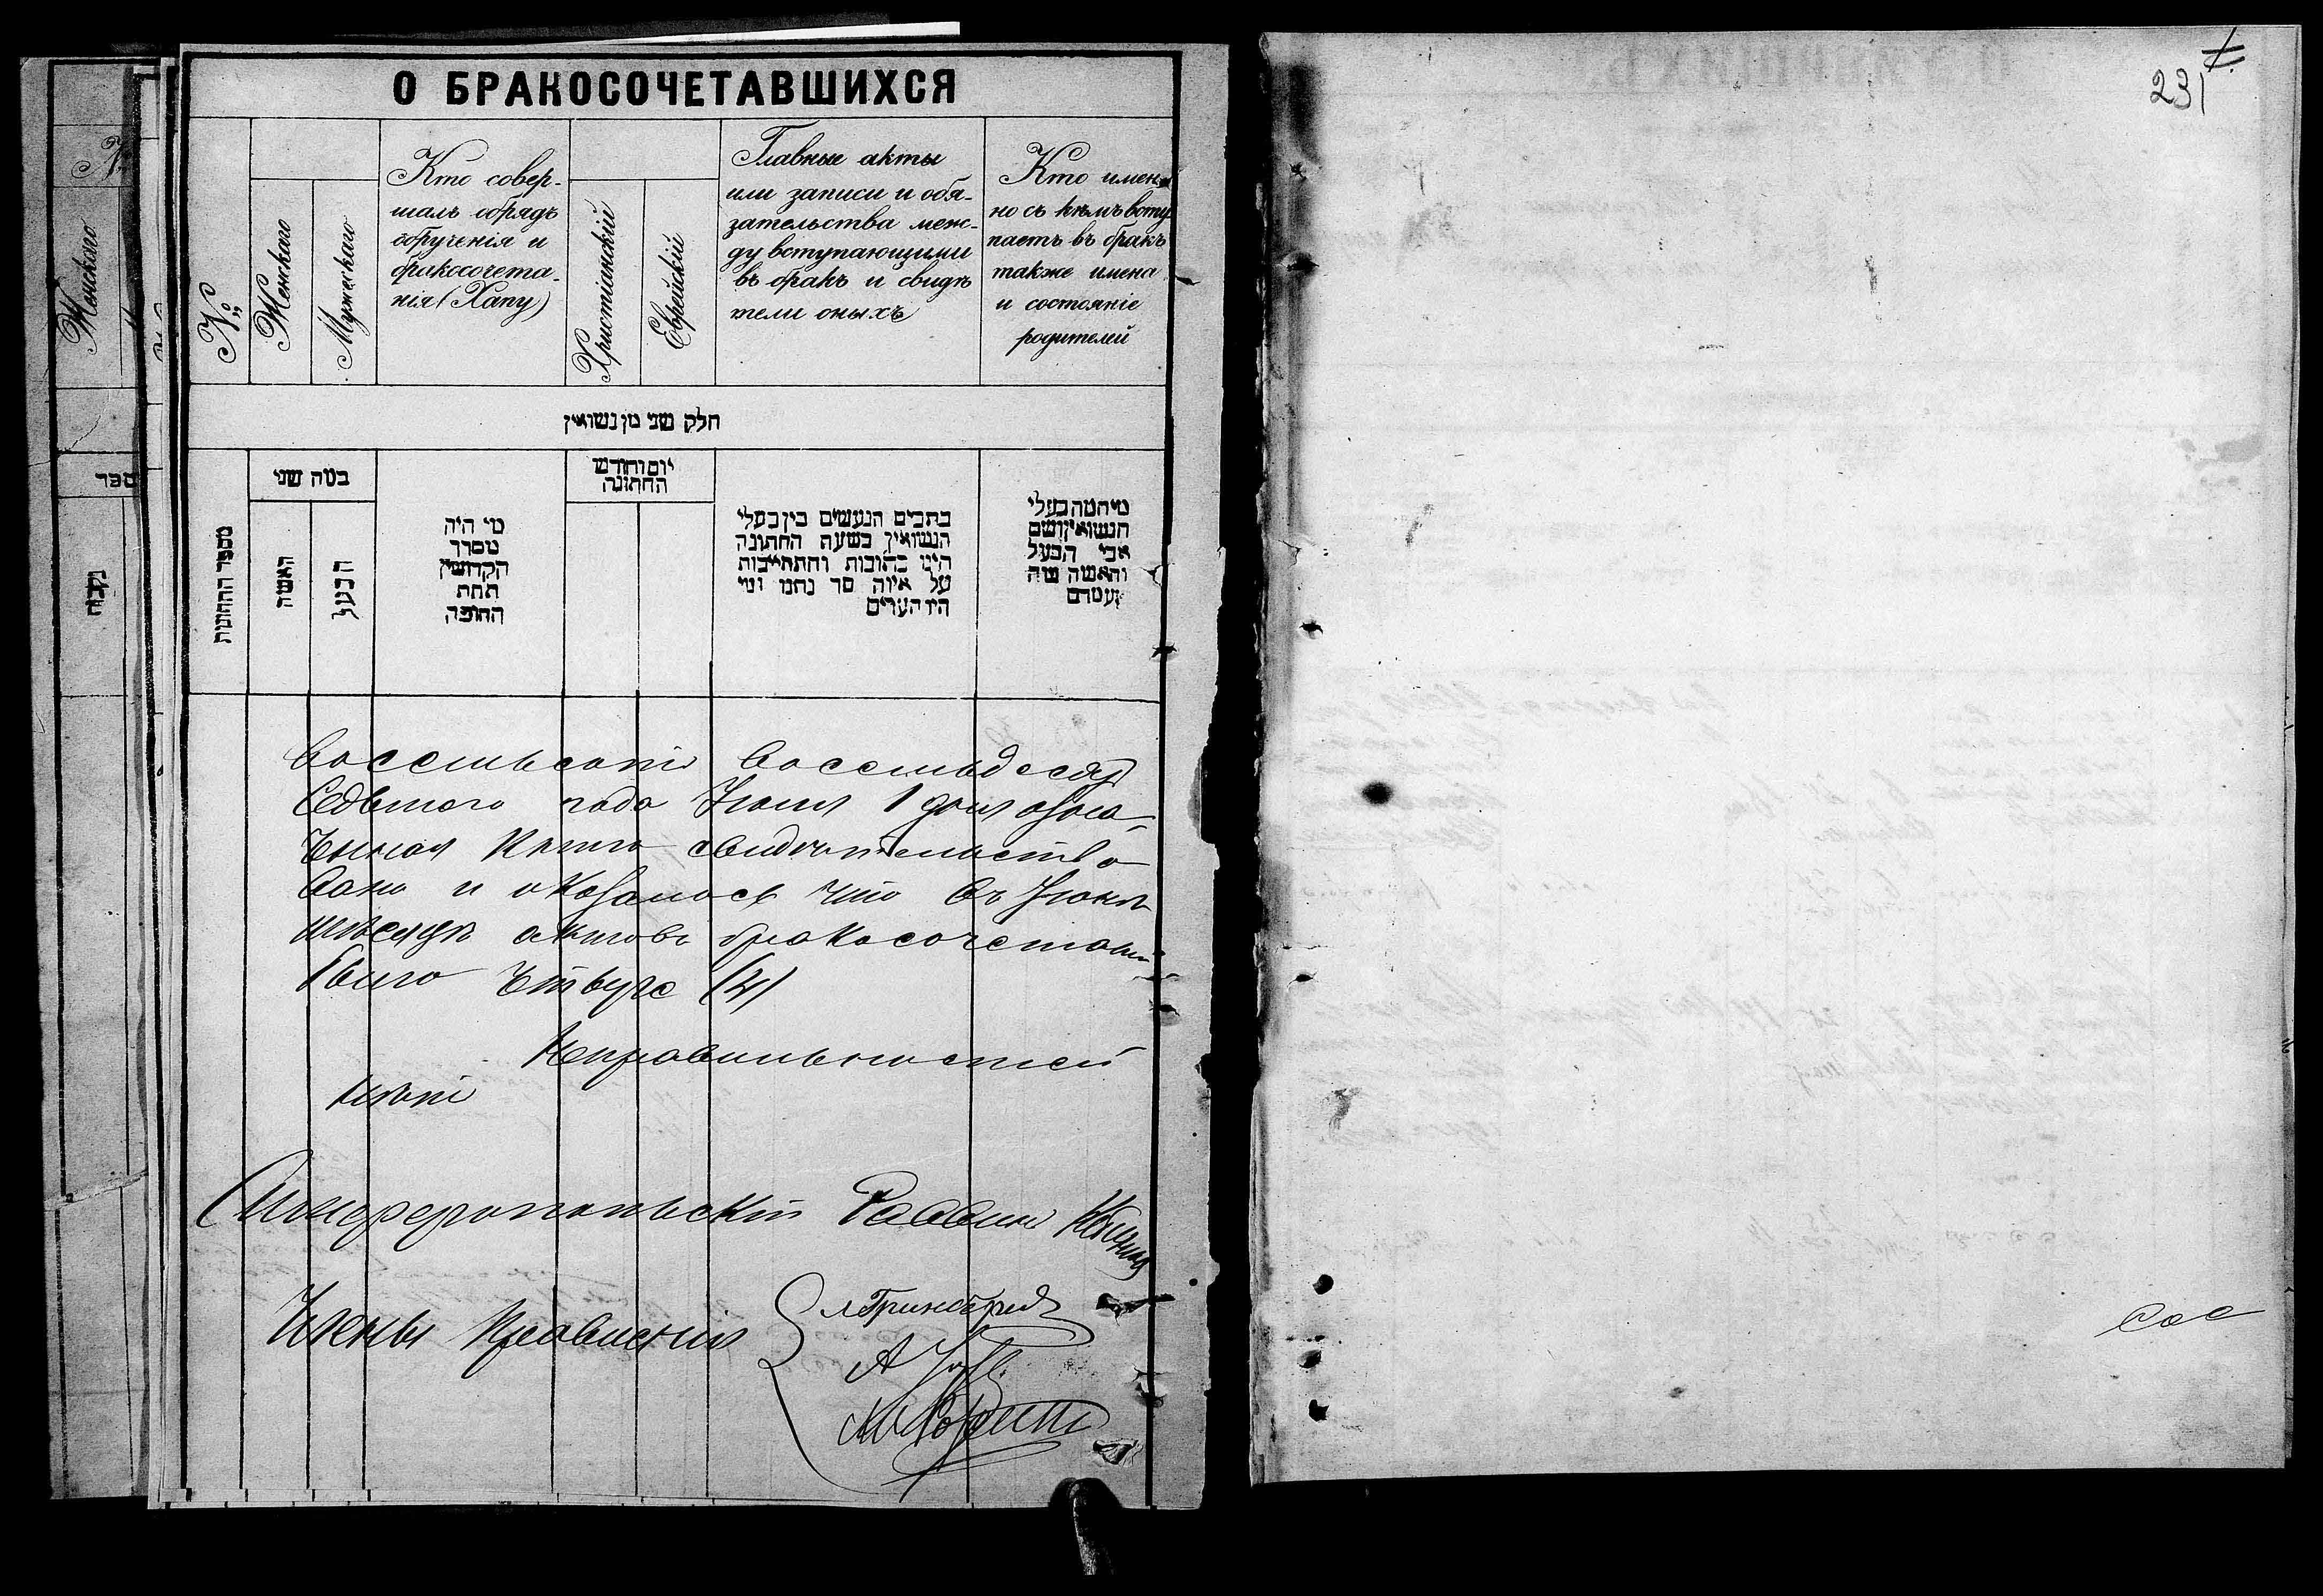 О БРАКОСОЧЕТАВШИХСЯ
№
Женскаго
Мужескаго
Кто совер-
шалъ обрядъ
обрученія и
бракосочета-
нія (Хапу)
Христіанскій
Еврейскій
Главные акты
или записи и обя-
зательства меж-
ду вступающими
въ бракъ и свидѣ
тели оныхъ
Кто имен
но съ кѣмъ всту
паетъ въ бракъ
также имена
и состояніе
родителей
חלק שני מן נשואין
מספר החתונות
במה שני
האשה
הבעל
מי היה
מסדר
הקדושין
תחת
החופה
יום וחודש
החתונה
כתבים הנעשים בין בעלי
הנשואין בשעת החתונה
היינו כתובות והתחייבות
על איזה סך נתנו ומי
היו העדים
מי המה בעלי
הנשואין ושם
אבי הבעל
והאשה
восемьсотъ восемьдесят
Седьмого года Июля 1 дня озна-
ченная Книга свидѣтельство
вана и оказалось что въ Июнѣ
мѣсяцѣ актовъ бракосочетаній
было четыре (4)
Неправильностей
нѣтъ
Симферопольскій Раввинъ
Члены Правленія
Женскаго
ספר
נקבות
231